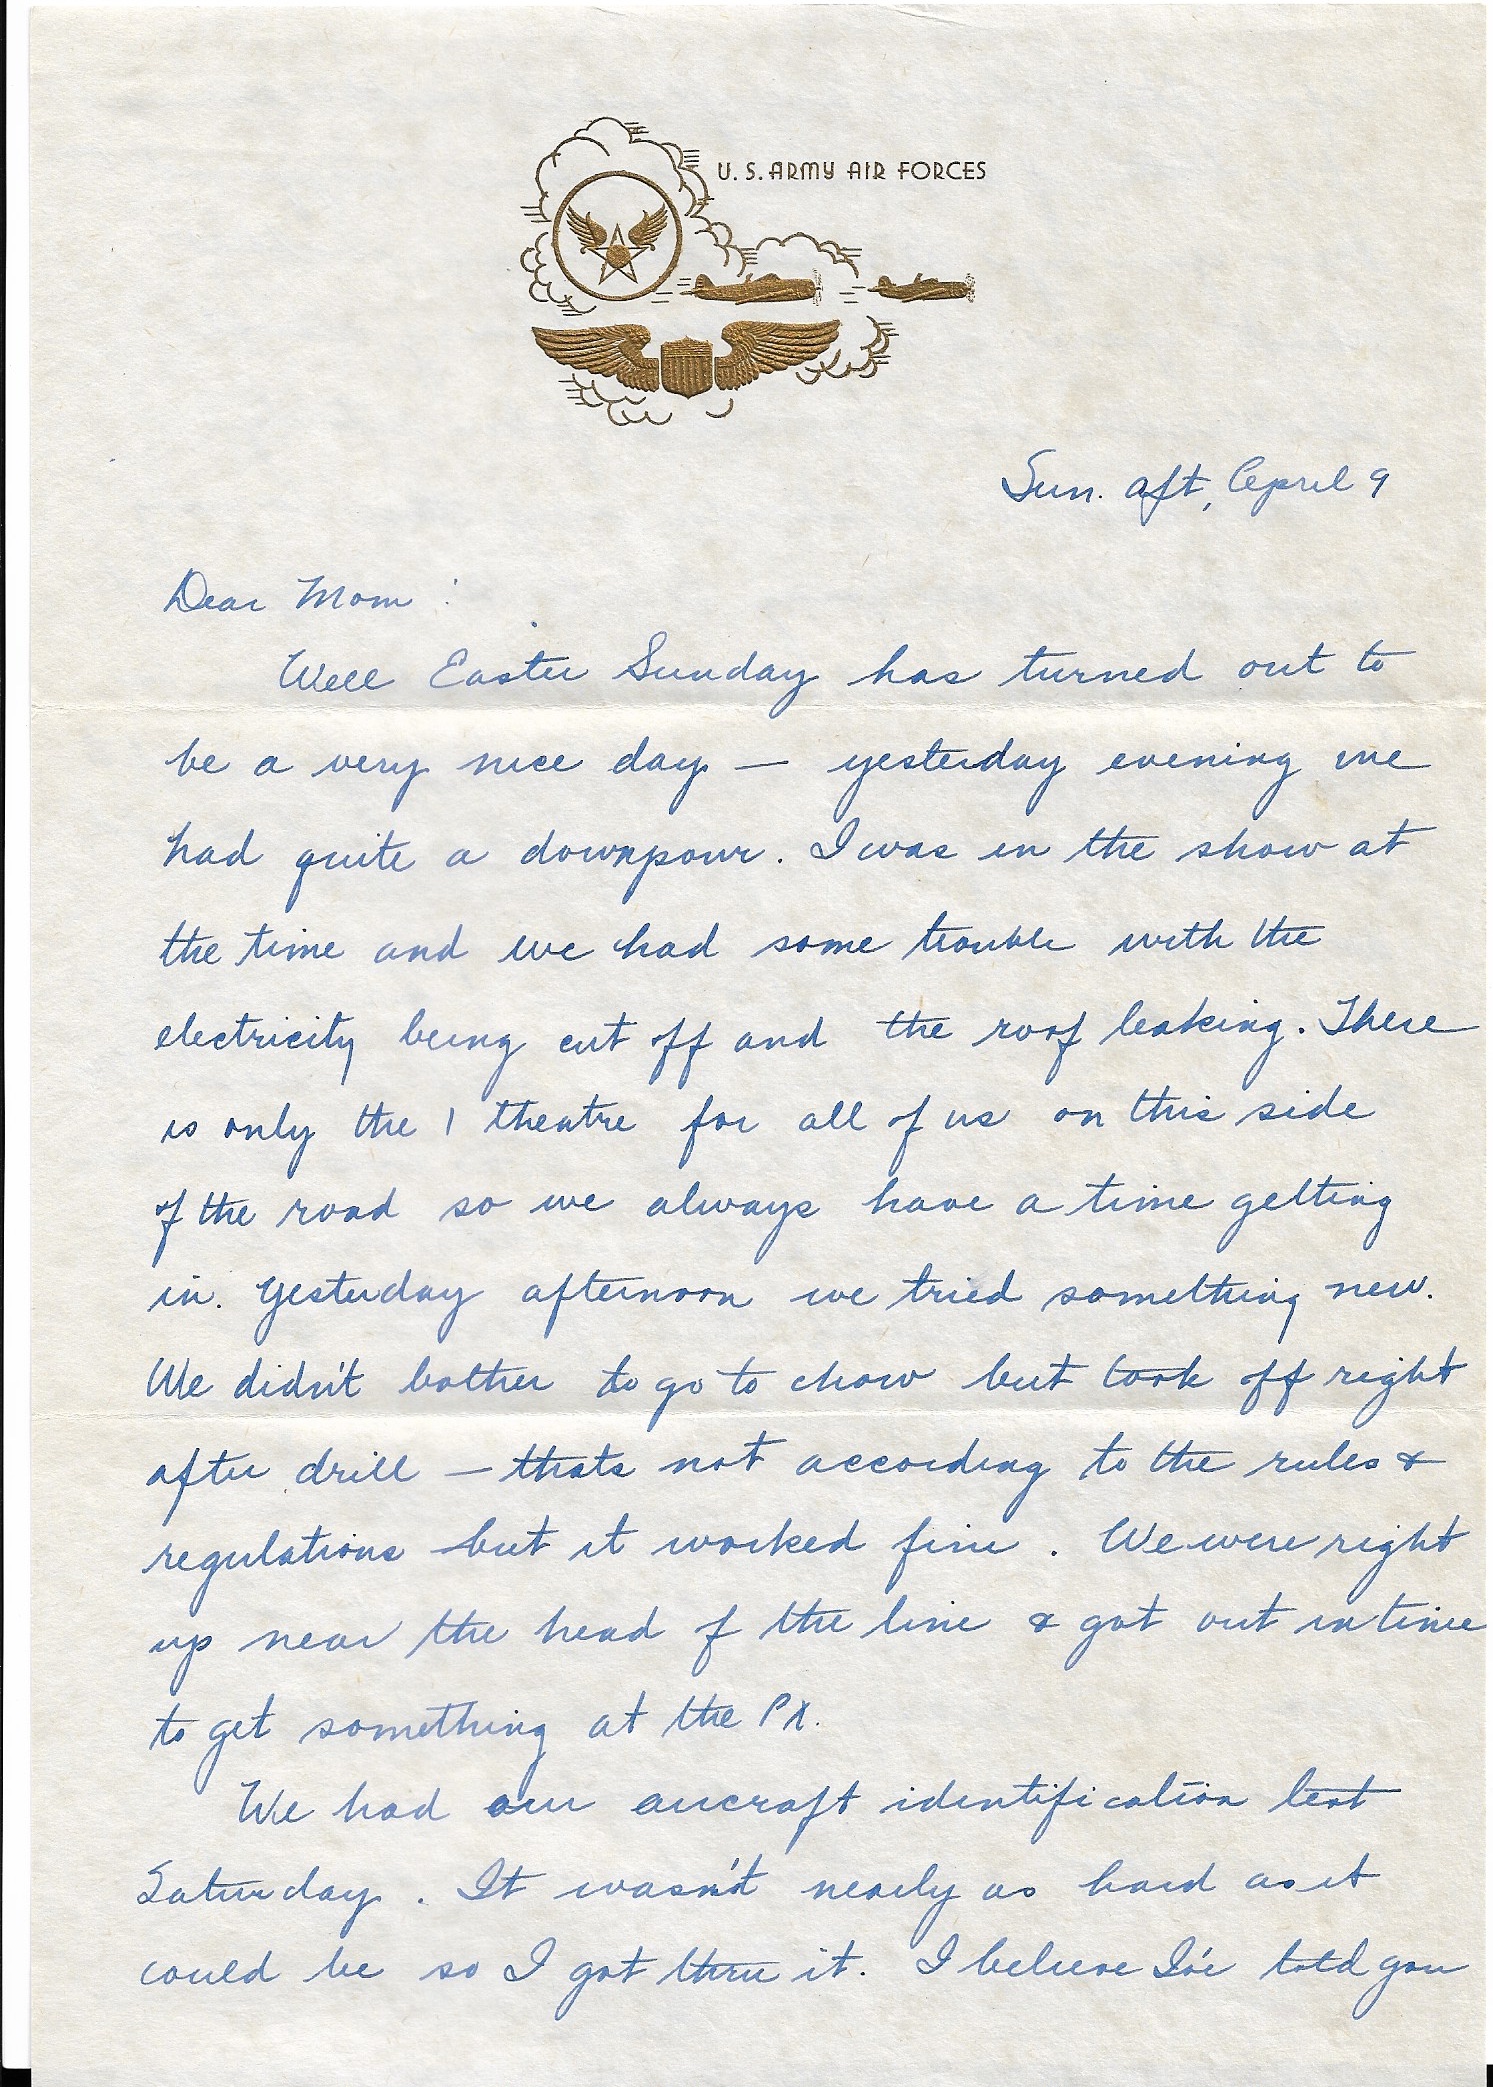 U. S. ARMY AIR FORCES
Sun. aft, April 9
Dear Mom :
Well Easter Sunday has turned out to
be a very nice day — yesterday evening we
had quite a downpour. I was in the show at
the time and we had some trouble with the
electricity being cut off and the roof leaking. There
is only the 1 theatre for all of us on this side
of the road so we always have a time getting
in. Yesterday afternoon we tried something new.
We didn't bother to go to chow but took off right
after drill — thats not according to the rules &
regulations but it worked fine. We were right
up near the head of the line & got out in time
to get something at the PX.
We had our aircraft identification test
Saturday. It wasn't nearly as hard as it
could be so I got thru it. I believe I've told you